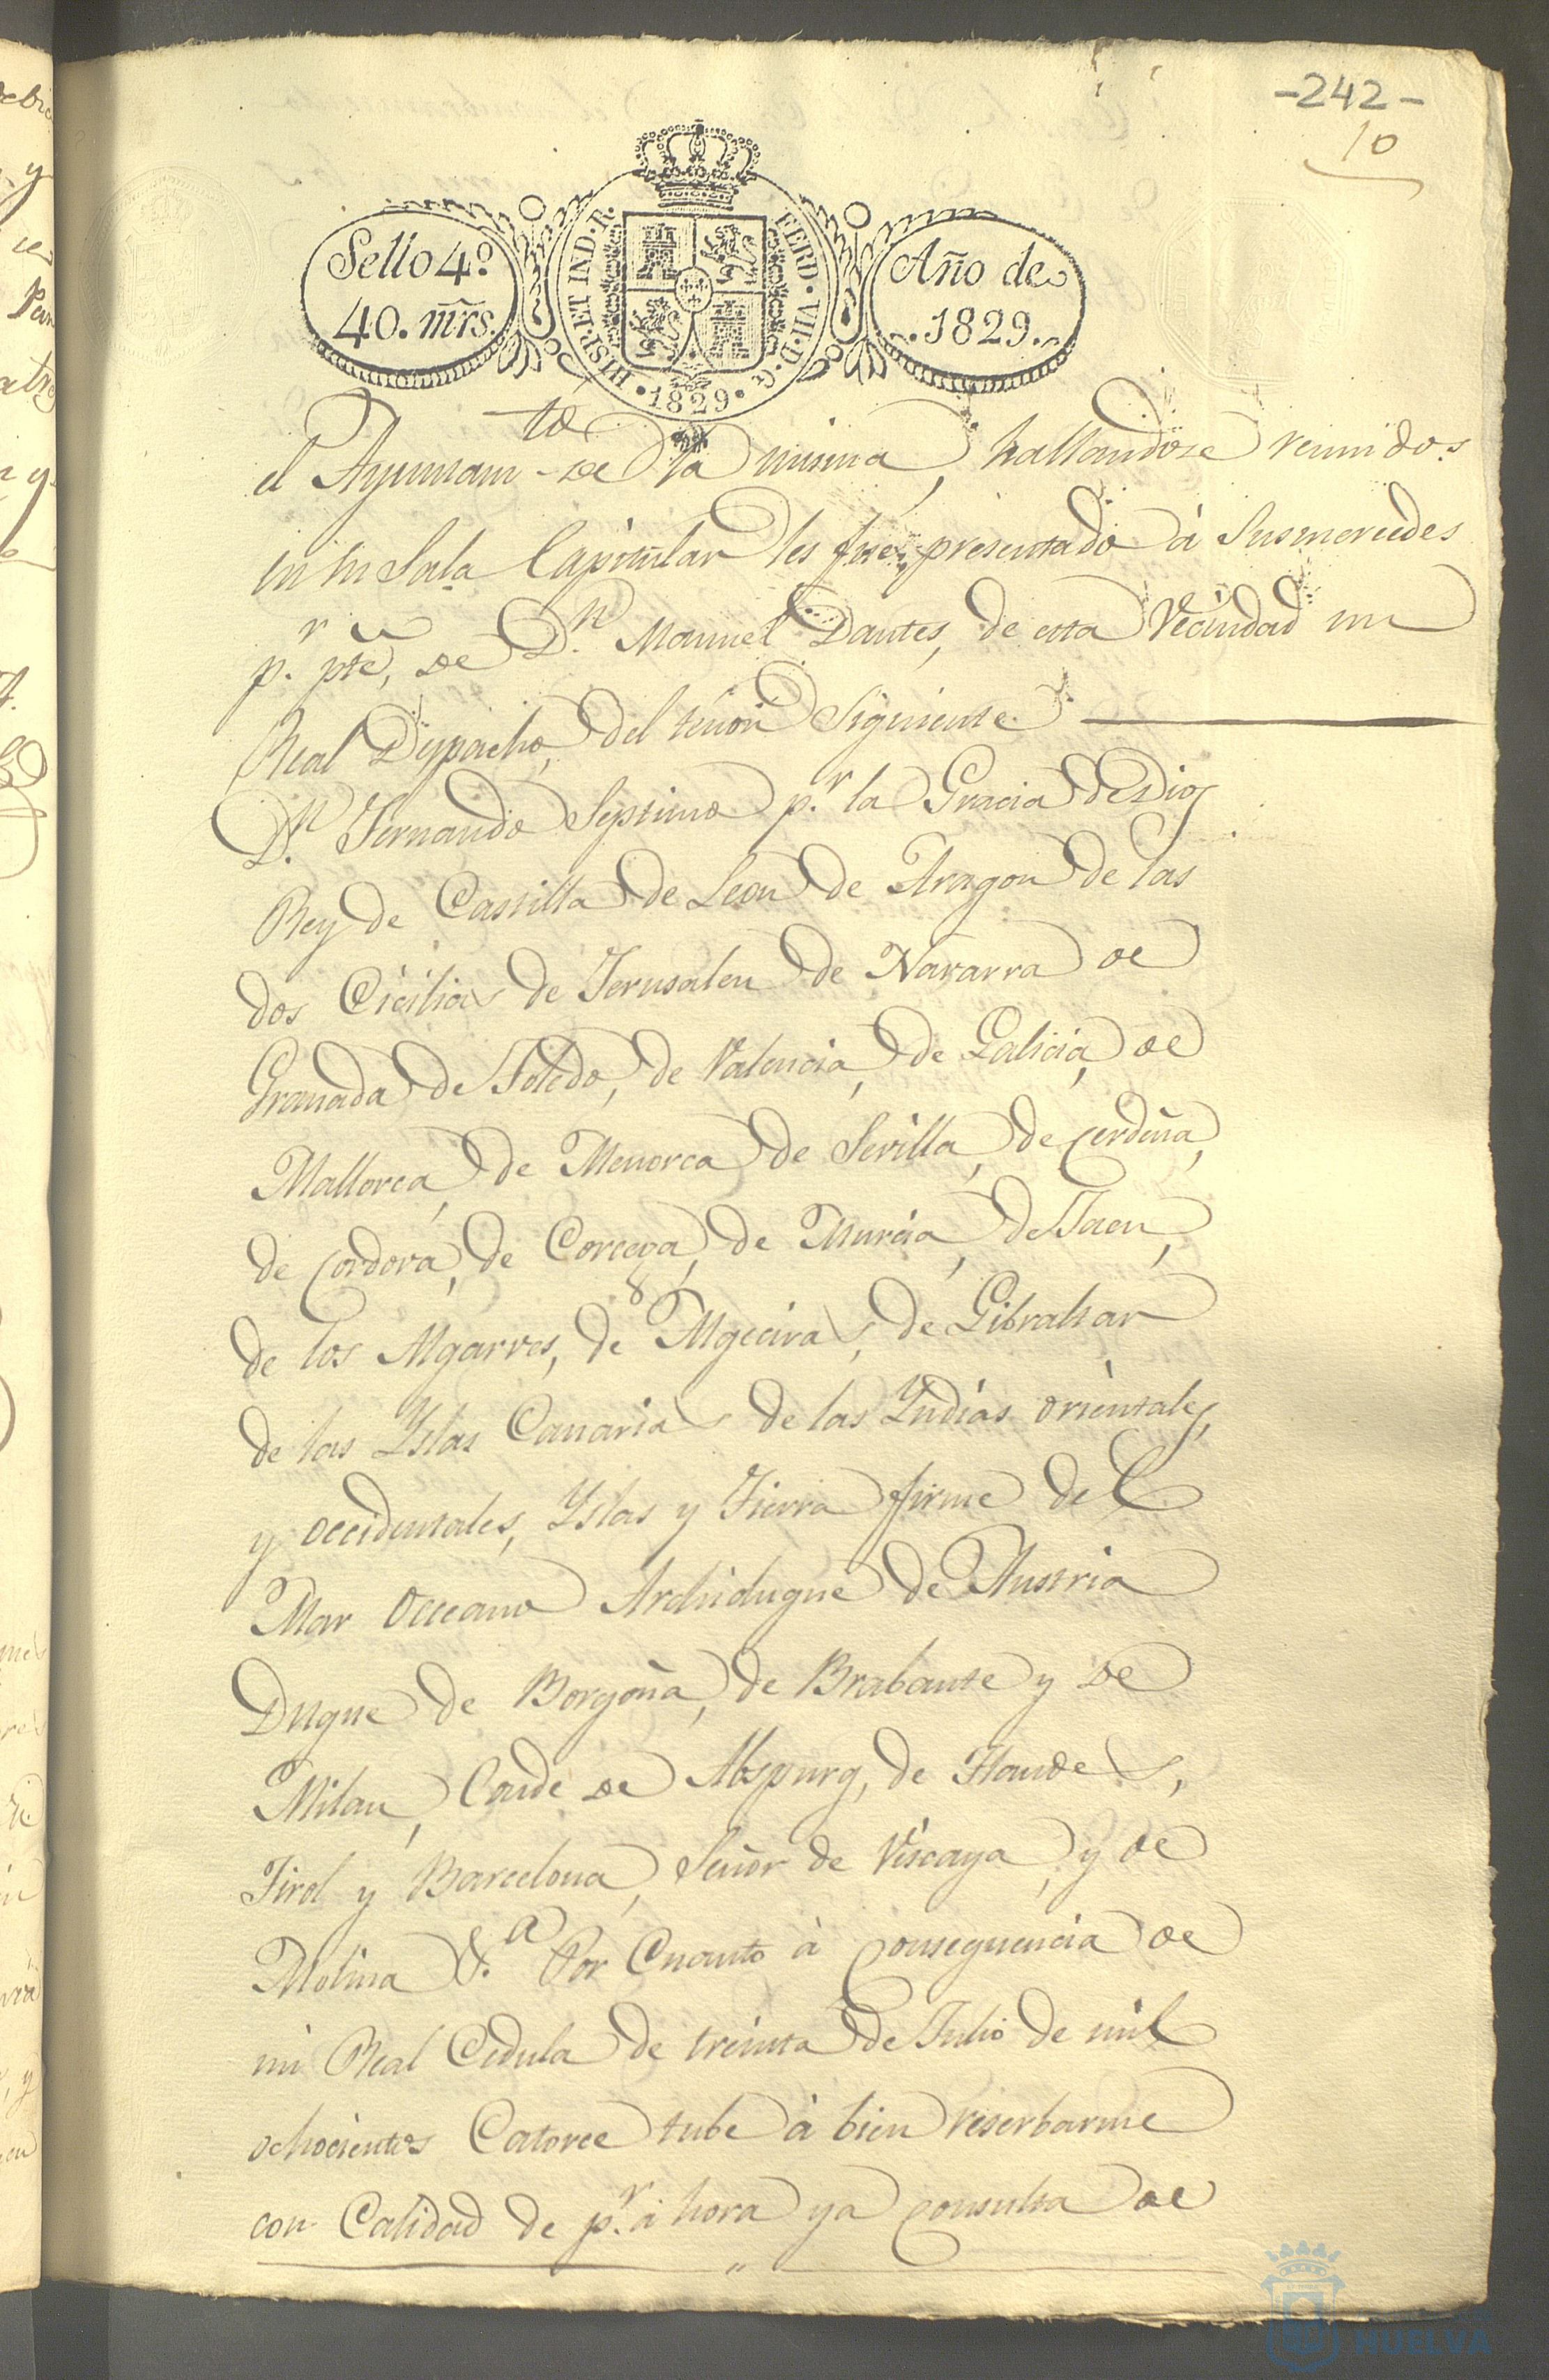 -242-
10
Sello 4º
40. mrs.
HISP. ET IND. R. FERD. VII. D. G.
· 1829 ·
Año de
. 1829 .
el Ayuntam.to de la misma, hallandose reunidos
en su Sala Capitular les fue presentado à Susmercedes
p.r pte, de D.n Manuel Dantes, de esta Vecindad un
Real Despacho, del tenor Siguiente
D.n Fernando Septimo p.r la Gracia de Dios
Rey de Castilla de Leon de Aragon de las
dos Cicilias de Jerusalen de Navarra de
Granada de Toledo, de Valencia, de Galicia, de
Mallorca, de Menorca de Sevilla, de Cerdeña,
de Cordova, de Corcega, de Murcia, de Jaen,
de los Algarves, de Algeciras, de Gibraltar
de las Yslas Canarias de las Yndias orientales,
y occidentales, Yslas y Tierra firme del
Mar Occeano Archiduque de Austria
Duque de Borgoña, de Brabante y de
Milan, Conde de Abspurg, de Flandes,
Tirol y Barcelona, Señor de Viscaya, y de
Molina &.a Por Cuanto à consequencia de
mi Real Cedula de treinta de Julio de mil
ochocientos Catorce tube à bien reserbarme
con Calidad de p.r ahora ya consulta de
HUELVA